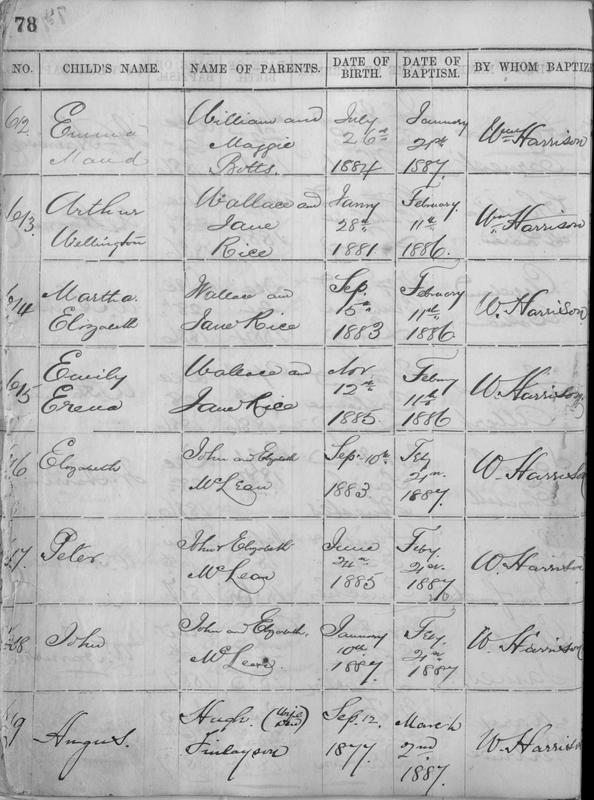 78
NO. CHILD'S NAME. NAME OF PARENTS. DATE OF BIRTH. DATE OF BAPTISM. BY WHOM BAPTIZE
612 Emma Maud William and Maggie Botts. July 26th 1884 January 1887. Wm Harrison
613. Arthur Wellington Wallace and Jane Rice Janny 28th 1881 February. 11th 1886. Wm Harrison
614 Martha. Elizabeth Wallace and Jane Rice Sep. 15th 1883 February 11th 1886 W. Harrison
615 Emily Erena Wallace and Jane Rice Nov. 12th 1885. Febuy 11th 1886 W. Harrison
16 Elizabeth John and Elizabeth McLean Sep. 10th 1883 Feby 1887. W. Harrison
17. Peter. John & Elizabeth McLean June 24th 1885 Feby. 1887 W. Harrison
18 John John and Elizabeth. McLean. January 10th 1887. Feby 1887 W. Harrison
9 Angus. Hugh. (Wife Dead) Finlayson Sep. 12. 1877. March 2nd 1887. W. Harrison